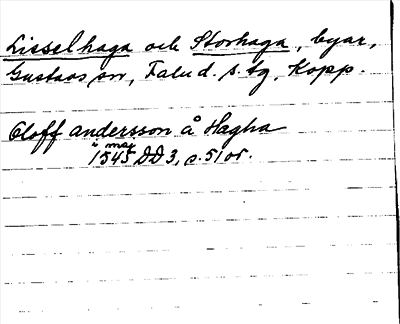 Lisselhaga och Storhaga, byar,
Gustavs sn, Falu d. s. tg, Kopp.
Oloff andersson å Hagha
4 maj
1545 DD 3, s. 51 or.